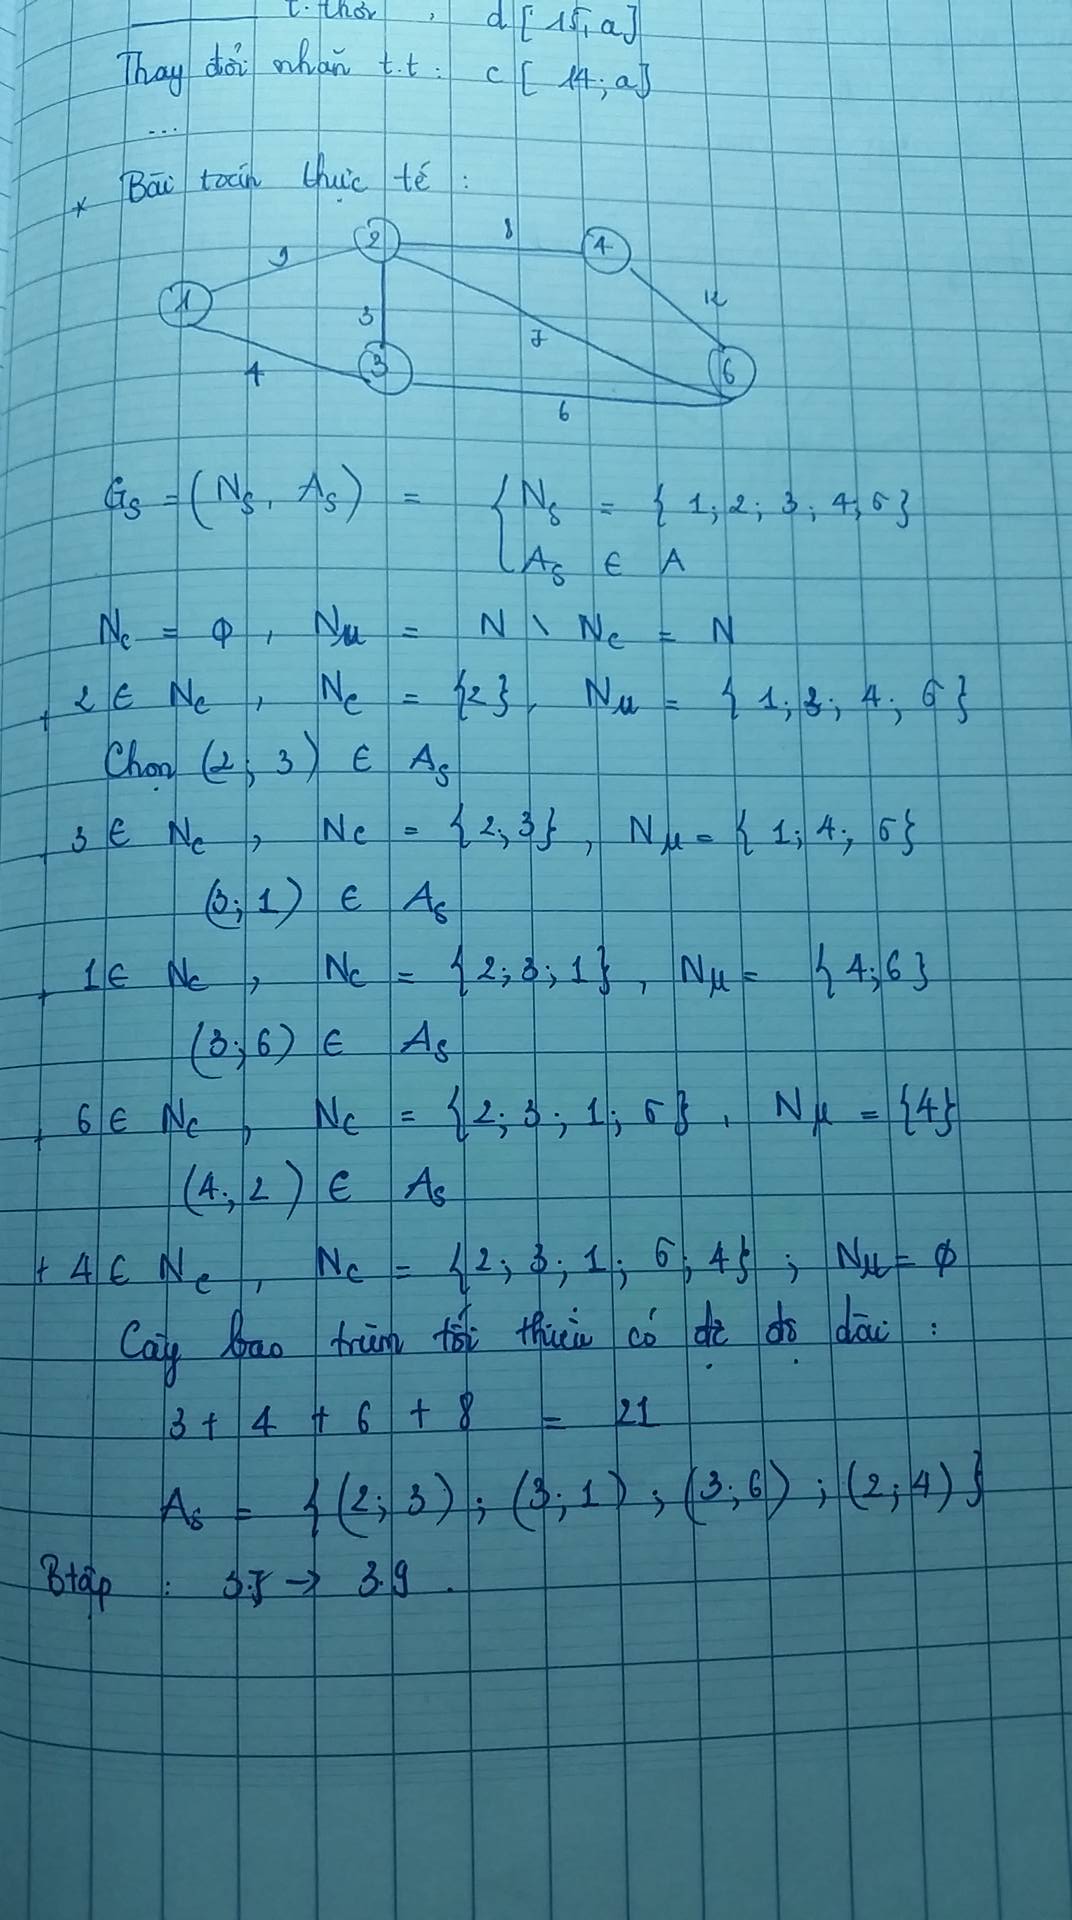 t.thời , d [ 15, a]
Thay đổi nhãn t.t : c [ 14; a]
...
* Bài toán thực tế :
2 8 4
9 12
1 3 7
4 3 6
6
Gs = (Ns, As) = { Ns = { 1; 2; 3; 4; 6 }
As ∈ A
Nc = ϕ , Nµ = N \ Nc = N
+ 2 ∈ Nc , Nc = {2}, Nµ = { 1; 3; 4; 6 }
Chọn (2; 3) ∈ As
+ 3 ∈ Nc , Nc = { 2; 3} , Nµ = { 1; 4; 6}
(3; 1) ∈ As
+ 1 ∈ Nc , Nc = { 2; 3; 1} , Nµ = { 4; 6 }
(3; 6) ∈ As
+ 6 ∈ Nc , Nc = { 2; 3; 1; 6 } , Nµ = {4}
(4; 2) ∈ As
+ 4 ∈ Nc , Nc = {2; 3; 1; 6; 4} ; Nµ = ϕ
Cây bao trùm tối thiểu có độ dài :
3 + 4 + 6 + 8 = 21
As = { (2; 3) ; (3; 1) ; (3; 6) ; (2; 4) }
Btập : 3.5 → 3.9 .